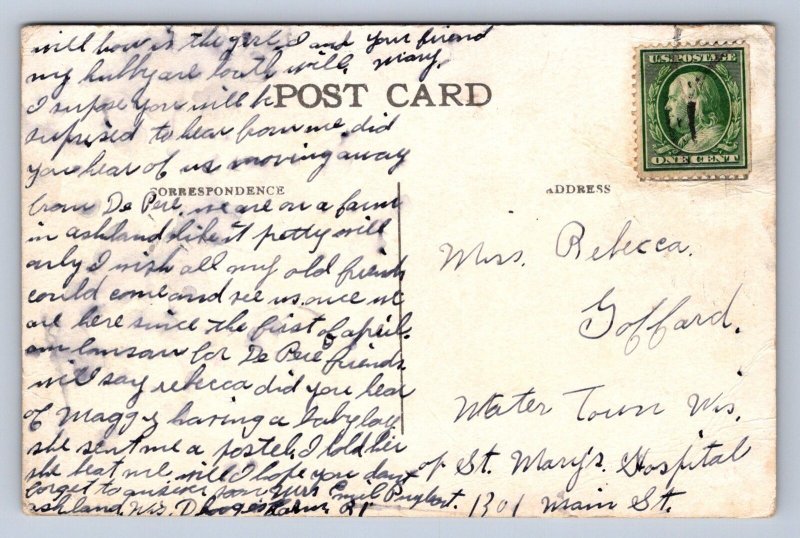 will how is the girl I and your friend
my hubby are both will. Mary.
I supose you will b
POST CARD
suprised to hear from me did
you hear of us moving away
CORRESPONDENCE
from De Pere, we are on a farm
in ashland like it pretty will
only I wish all my old friends
could come and see us once we
are here since the first of april.
am lonsom for De Pere friends.
will say rebecca did you hear
of Maggy having a baby boy
she sent me a postel. I told her
she beat me. will I hope you dont
forget to answer soon Mrs Emil
ashland, Wis. R 1
U.S. POSTAGE
ONE CENT
ADDRESS
Miss. Rebecca.
Goffard.
Water Town Wis.
of St. Mary's. Hospital
1301 Main St.